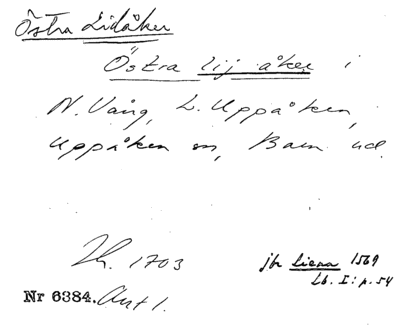 Östra Lidåker
Östra lij åker i
N. Vång, L. Uppåkra,
Uppåkra sn, Bara hd.
Lh. 1703
jfr Liena 1569
Lb. I: p. 54
Nr 6384. Ant 1.